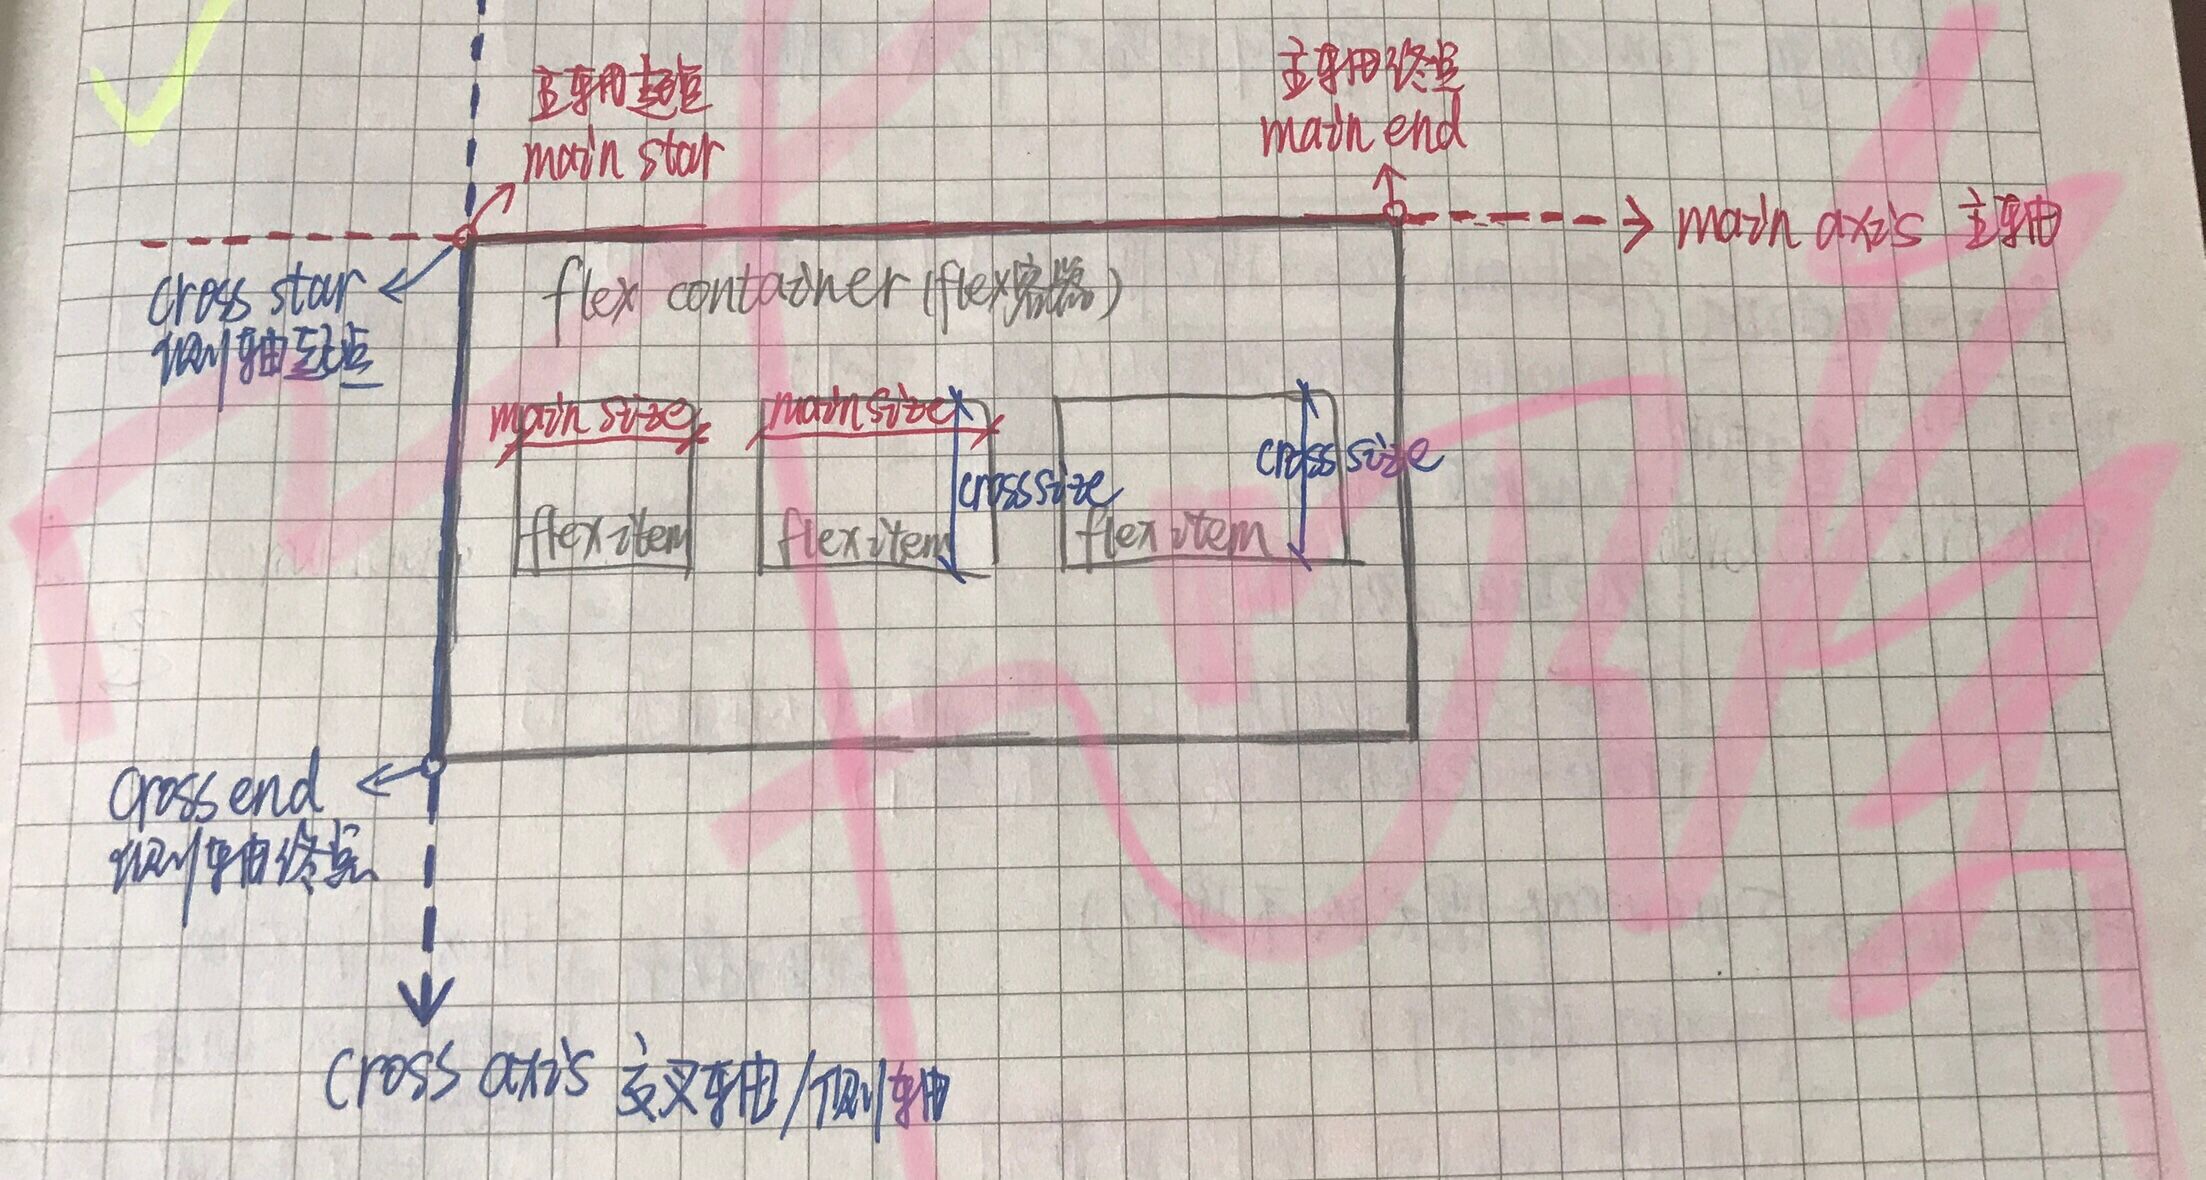 主轴起点
main star
主轴终点
main end
main axis 主轴
cross star
侧轴起点
flex container (flex容器)
main size
main size
cross size
cross size
flex item
flex item
flex item
cross end
侧轴终点
cross axis 交叉轴/侧轴